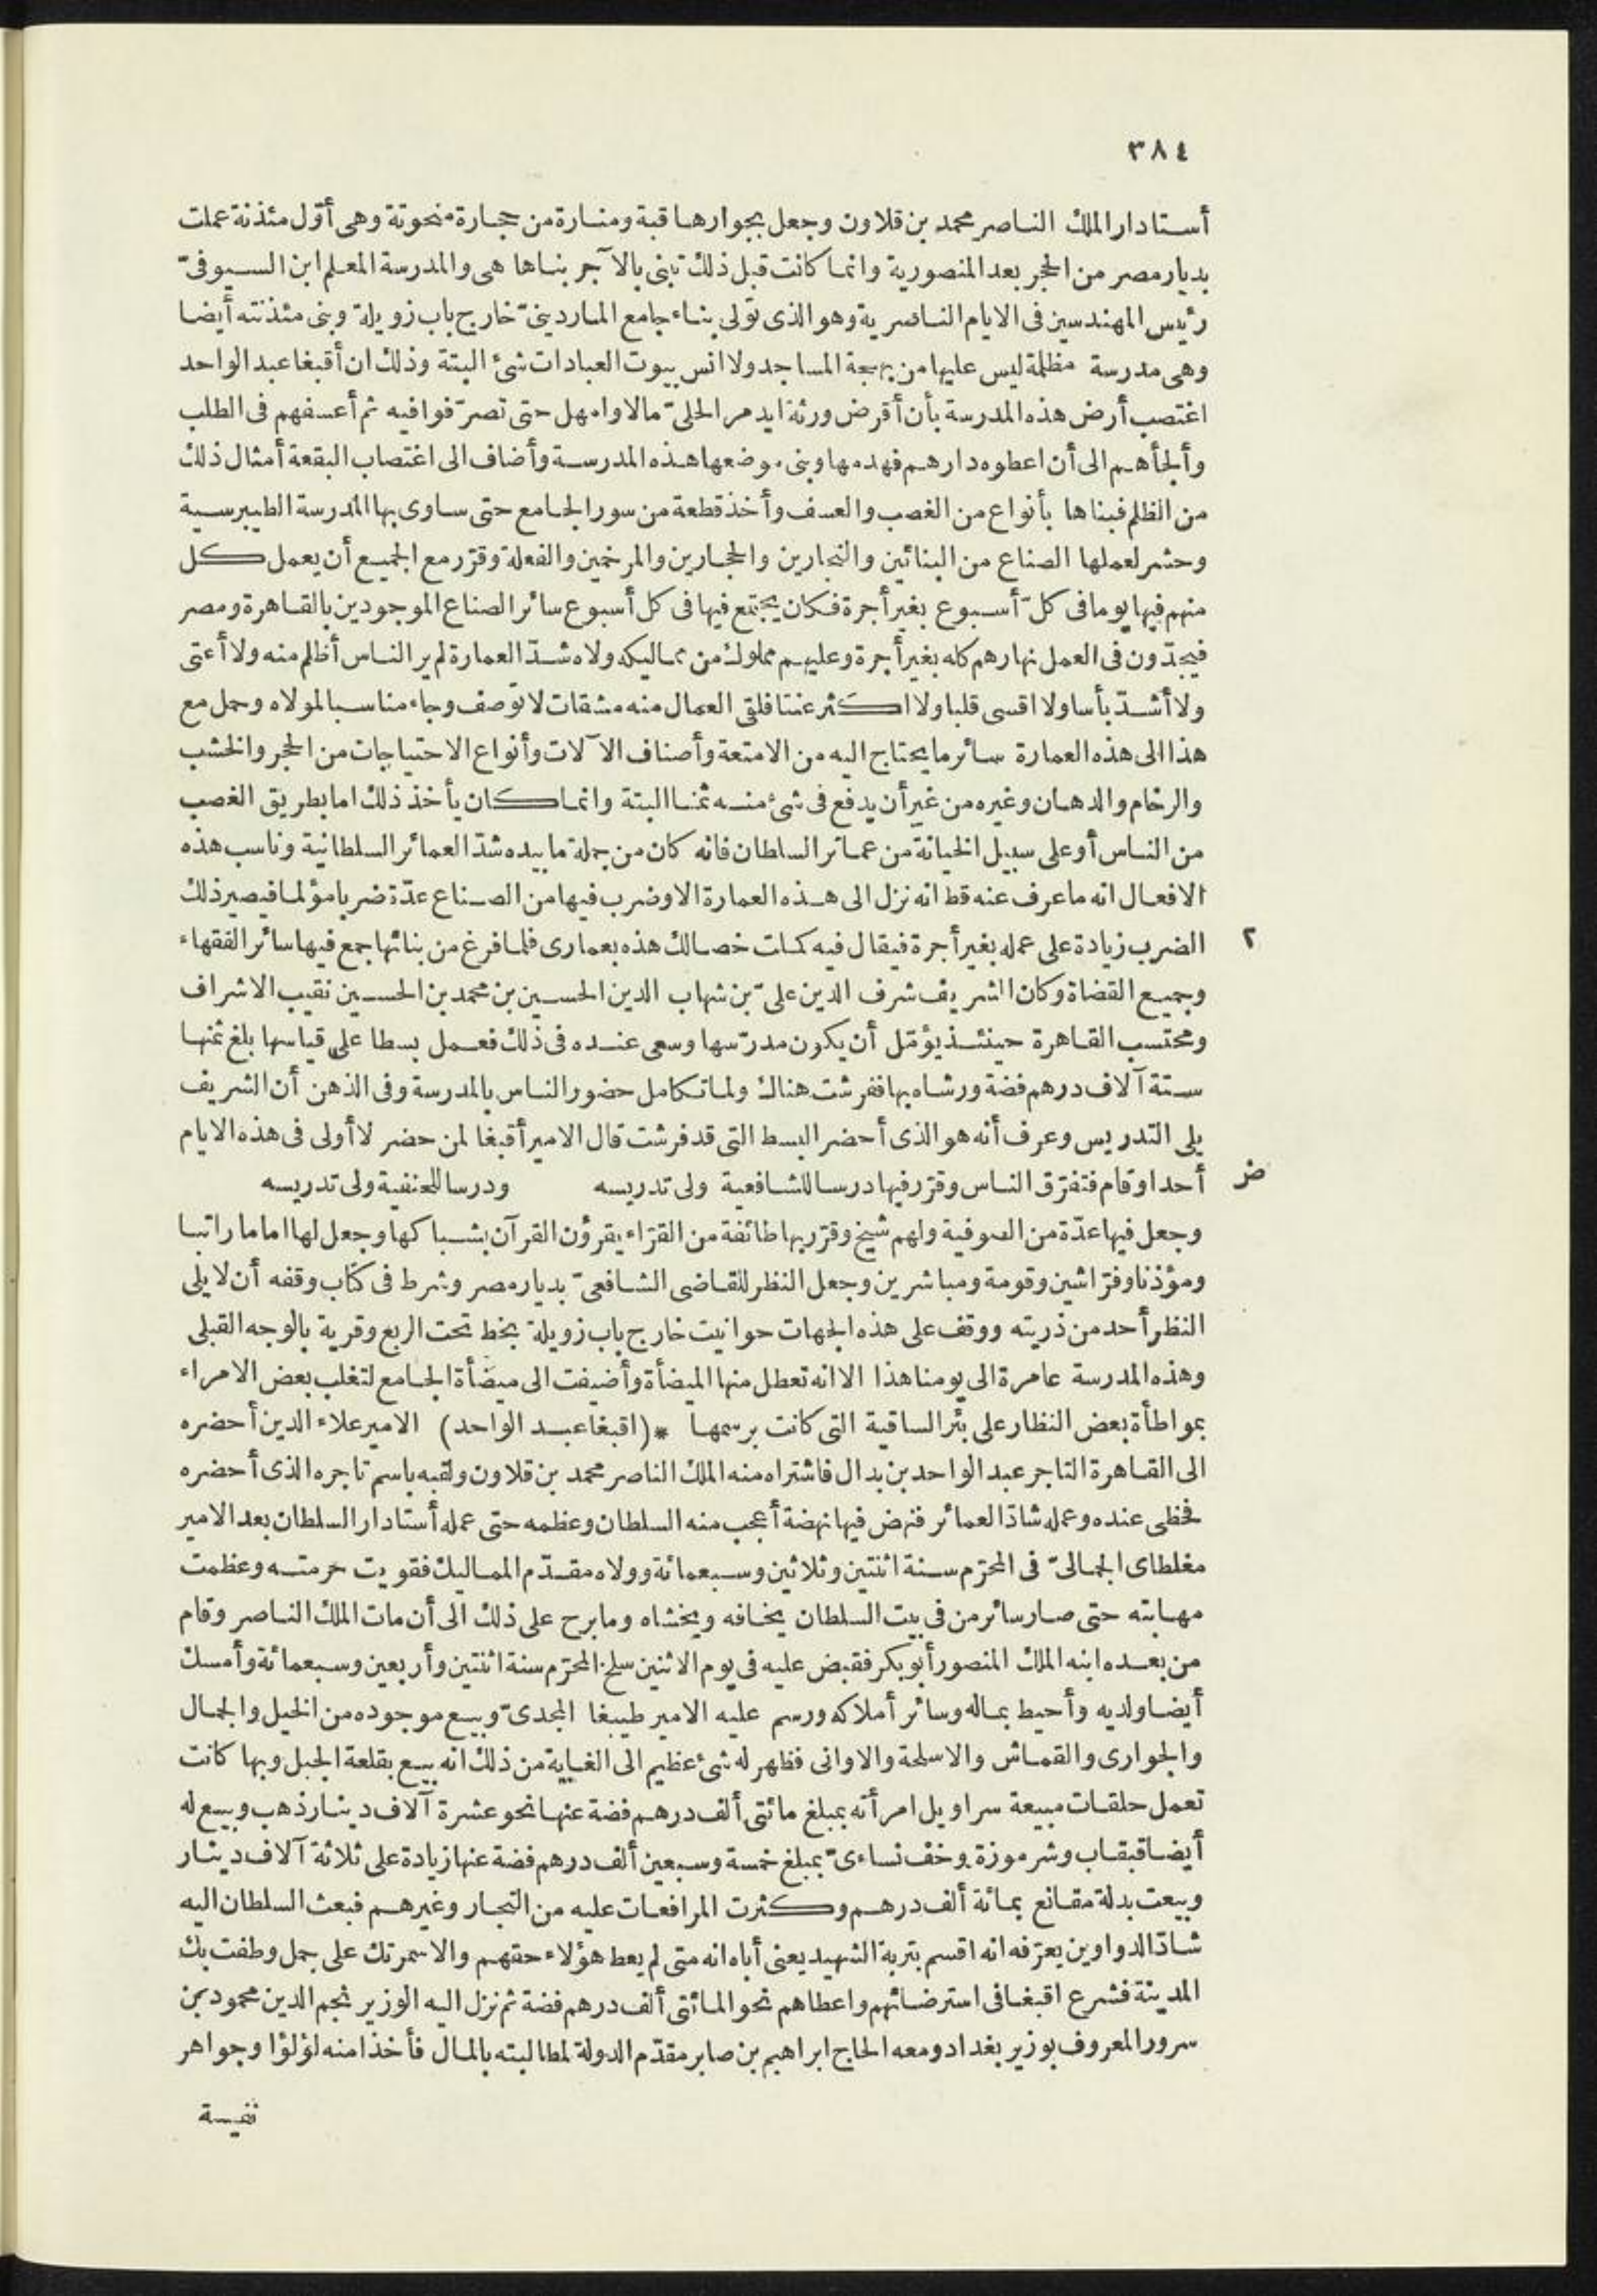 ٣٨٤
أستادار الملك الناصر محمد بن قلاون وجعل بجوارها قبة ومنارة من حجارة منحوتة وهى أوّل مئذنة عملت
بديار مصر من الحجر بعد المنصورية وانما كانت قبل ذلك تبنى بالآجر بناها هى والمدرسة المعلم ابن السيوفىّ
رئيس المهندسين فى الايام الناصرية وهو الذى تولى بناء جامع الماردينىّ خارج باب زويلة وبنى مئذنته أيضا
وهى مدرسة مظلمة ليس عليها من بهجة المساجد ولا انس بيوت العبادات شئ البتة وذلك ان أقبغا عبد الواحد
اغتصب أرض هذه المدرسة بأن أقرض ورثة ايدمر الحلىّ مالا وامهل حتى تصرّفوا فيه ثم أعسفهم فى الطلب
وألجأهم الى أن اعطوه دارهم فهدمها وبنى موضعها هذه المدرسة وأضاف الى اغتصاب البقعة أمثال ذلك
من الظلم فبناها بأنواع من الغصب والعسف وأخذ قطعة من سور الجامع حتى ساوى بها المدرسة الطيبرسية
وحشر لعملها الصناع من البنائين والنجارين والحجارين والمرخمين والفعلة وقرّر مع الجميع أن يعمل كل
منهم فيها يوما فى كلّ أسبوع بغير أجرة فكان يجتمع فيها فى كل أسبوع سائر الصناع الموجودين بالقاهرة ومصر
فيجدّون فى العمل نهارهم كله بغير أجرة وعليهم مملوك من مماليكه ولاه شدّ العمارة لم ير الناس أظلم منه ولا أعتى
ولا أشدّ بأسا ولا اقسى قلبا ولا اكثر عنتا فلقى العمال منه مشقات لا توصف وجاء مناسبا لمولاه وحمل مع
هذا الى هذه العمارة سائر ما يحتاج اليه من الامتعة وأصناف الآلات وأنواع الاحتياجات من الحجر والخشب
والرخام والدهان وغيره من غير أن يدفع فى شئ منه ثمنا البتة وانما كان يأخذ ذلك اما بطريق الغصب
من الناس أو على سبيل الخيانة من عمائر السلطان فانه كان من جملة ما بيده شدّ العمائر السلطانية وناسب هذه
الافعال انه ما عرف عنه قط انه نزل الى هذه العمارة الا وضرب فيها من الصناع عدّة ضربا مؤلما فيصير ذلك
الضرب زيادة على عمله بغير أجرة فيقال فيه كملت خصالك هذه بعمارى فلما فرغ من بنائها جمع فيها سائر الفقهاء ٢
وجميع القضاة وكان الشريف شرف الدين علىّ بن شهاب الدين الحسين بن محمد بن الحسين نقيب الاشراف
ومحتسب القاهرة حينئذ يؤمّل أن يكون مدرّسها وسعى عنده فى ذلك فعمل بسطا على قياسها بلغ ثمنها
ستة آلاف درهم فضة ورشاه بها ففرشت هناك ولما تكامل حضور الناس بالمدرسة وفى الذهن أن الشريف
يلى التدريس وعرف أنه هو الذى أحضر البسط التى قد فرشت قال الامير أقبغا لمن حضر لا أولى فى هذه الايام
أحدا وقام فتفرّق الناس وقرّر فيها درسا للشافعية ولى تدريسه ودرسا للحنفية ولى تدريسه
وجعل فيها عدّة من الصوفية ولهم شيخ وقرّر بها طائفة من القرّاء يقرؤن القرآن بشباكها وجعل لها اماما راتبا
ومؤذنا وفرّاشين وقومة ومباشرين وجعل النظر للقاضى الشافعىّ بديار مصر وشرط فى كتاب وقفه أن لا يلى
النظر أحد من ذريته ووقف على هذه الجهات حوانيت خارج باب زويلة بخط تحت الربع وقرية بالوجه القبلى
وهذه المدرسة عامرة الى يومنا هذا الا انه تعطل منها الميضأة وأضيفت الى ميضأة الجامع لتغلب بعض الامراء
بمواطأة بعض النظار على بئر الساقية التى كانت برسمها *(اقبغا عبد الواحد) الامير علاء الدين أحضره
الى القاهرة التاجر عبد الواحد بن بدال فاشتراه منه الملك الناصر محمد بن قلاون ولقبه باسم تاجره الذى أحضره
فحظى عنده وعمله شادّ العمائر فنهض فيها نهضة أعجب منه السلطان وعظمه حتى عمله أستادار السلطان بعد الامير
مغلطاى الجمالىّ فى المحرّم سنة اثنتين وثلاثين وسبعمائة وولاه مقدّم المماليك فقويت حرمته وعظمت
مهابته حتى صار سائر من فى بيت السلطان يخافه ويخشاه وما برح على ذلك الى أن مات الملك الناصر وقام
من بعده ابنه الملك المنصور أبو بكر فقبض عليه فى يوم الاثنين سلخ المحرّم سنة اثنتين وأربعين وسبعمائة وأمسك
أيضا ولديه وأحيط بماله وسائر أملاكه ورسم عليه الامير طيبغا المجدىّ وبيع موجوده من الخيل والجمال
والجوارى والقماش والاسلحة والاوانى فظهر له شئ عظيم الى الغاية من ذلك انه بيع بقلعة الجبل وبها كانت
تعمل حلقات مبيعة سراويل امرأته بمبلغ مائتى ألف درهم فضة عنها نحو عشرة آلاف دينار ذهب وبيع له
أيضا قبقاب وشرموزة وخف نساءىّ بمبلغ خمسة وسبعين ألف درهم فضة عنها زيادة على ثلاثة آلاف دينار
وبيعت بدلة مقانع بمائة ألف درهم وكثرت المرافعات عليه من التجار وغيرهم فبعث السلطان اليه
شادّ الدواوين يعرّفه انه اقسم بتربة الشهيد يعنى أباه انه متى لم يعط هؤلاء حقهم والا سمرتك على جمل وطفت بك
المدينة فشرع اقبغا فى استرضائهم واعطاهم نحو المائتى ألف درهم فضة ثم نزل اليه الوزير نجم الدين محمود بن
سرور المعروف بوزير بغداد ومعه الحاج ابراهيم بن صابر مقدّم الدولة لمطالبته بالمال فأخذا منه لؤلؤا وجواهر
نفيسة